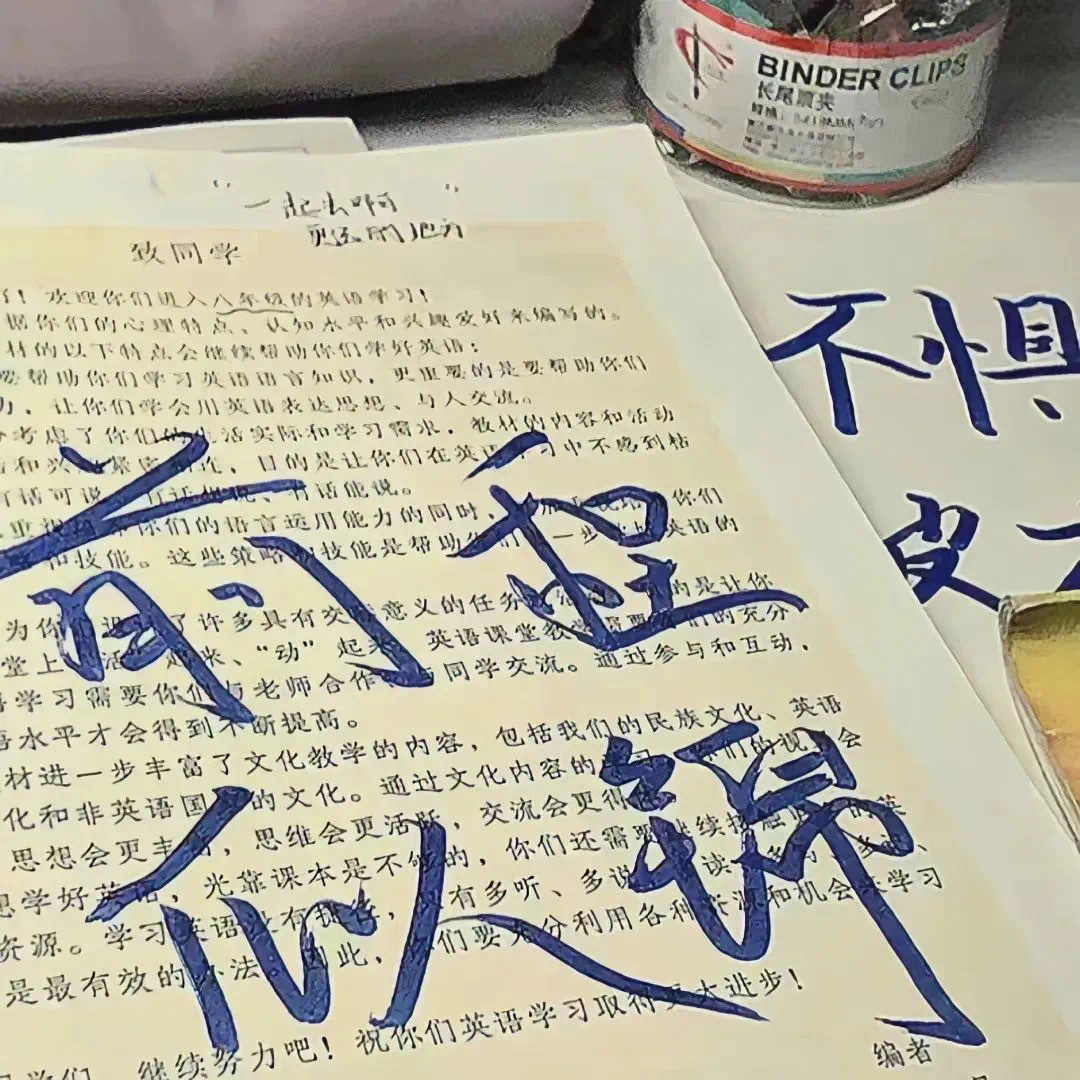 BINDER CLIPS
长尾票夹
"一起去啊
更远的地方"
致同学
了！欢迎你们进入八年级的英语学习！
据你们的心理特点、认知水平和兴趣爱好来编写的。
材的以下特点会继续帮助你们学好英语：
要帮助你们学习英语语言知识，更重要的是要帮助你们
力，让你们学会用英语表达思想、与人交流。
考虑了你们的生活实际和学习需求，教材的内容和活动
和兴 ，目的是让你们在英语学习中不感到枯
有话可说、有话想说、有话能说。
重视 你们的语言运用能力的同时， 你们
和技能。这些策略和技能是帮助你们 一步 英语的
为你 设 了许多具有交际意义的任务 的是让你
堂上"活"起来、"动"起来。英语课堂教学需要你们的充分
语学习需要你们与老师合作、与同学交流。通过参与和互动，
语水平才会得到不断提高。
材进一步丰富了文化教学的内容，包括我们的民族文化、英语
化和非英语国家的文化。通过文化内容的 你们的视 会
思想会更丰富，思维会更活跃，交流会更得
想学好英语，光靠课本是不够的，你们还需要继续 的英
资源。学习英语没有捷径，只有多听、多说、多读、多写、多
是最有效的办法。因此，你们要充分利用各种资源和机会来学习
同学们，继续努力吧！祝你们英语学习取得更大进步！
编者
前程
似锦
不惧